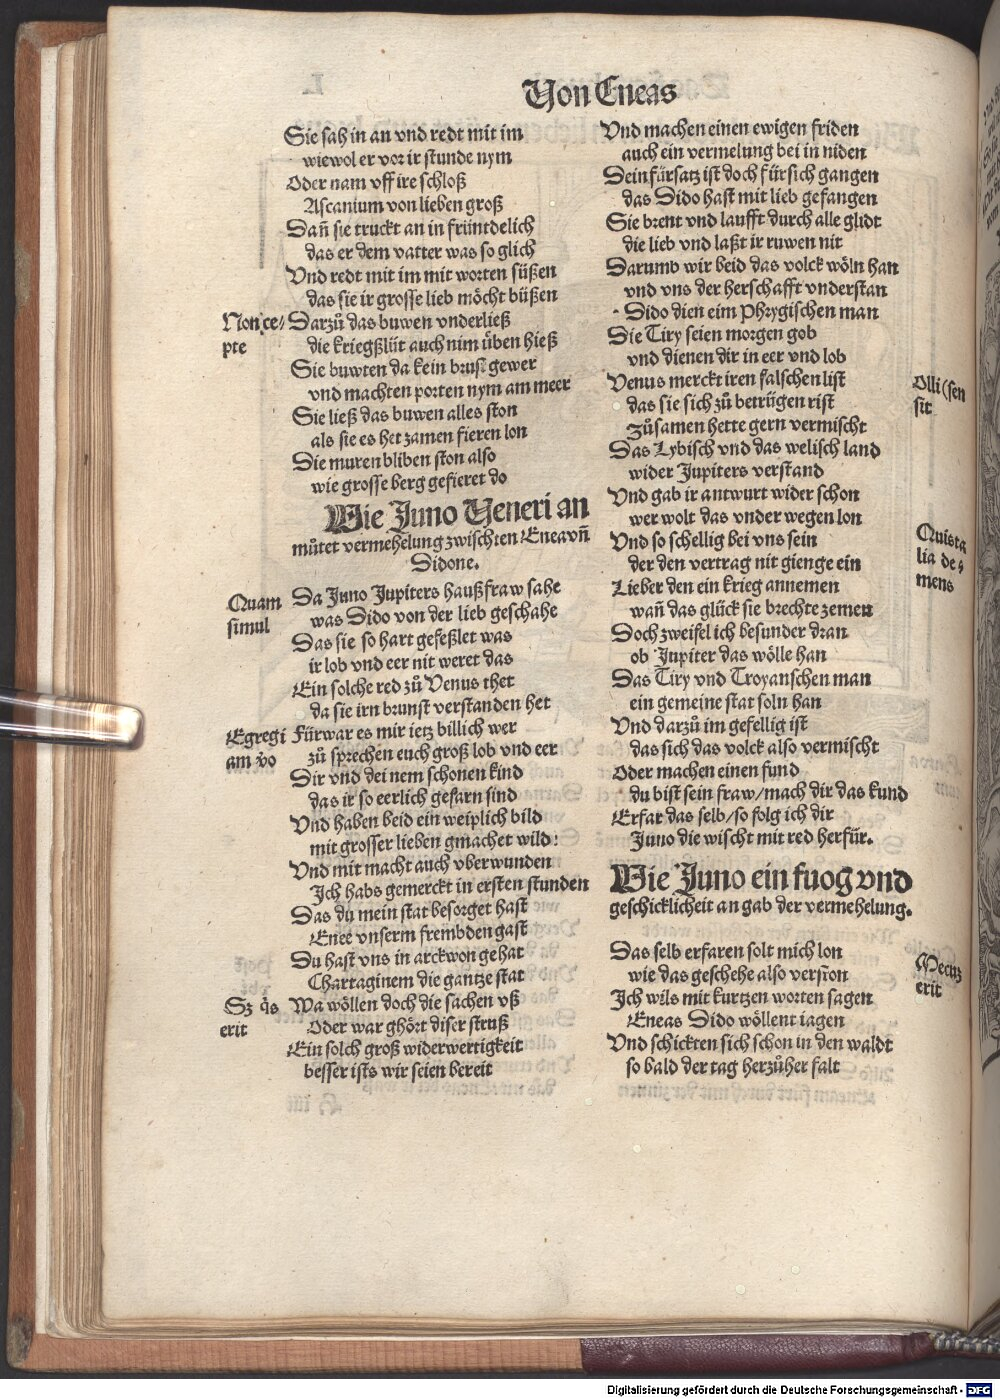 Von Eneas
Sie sah in an vnd redt mit im
wiewol er vor ir stunde nym
Oder nam vff ire schloß
Ascanium von lieben groß
Dañ sie truckt an in früntdelich
das er dem vatter was so glich
Vnd redt mit im mit worten süßen
das sie ir grosse lieb möcht büßen
Non ce/
pte
Darzů das buwen vnderließ
die kriegßlüt auch nim üben hieß
Sie buwten da kein brust gewer
vnd machten porten nym am meer
Sie ließ das buwen alles ston
als sie es het zamen fieren lon
Die muren bliben ston also
wie grosse berg gefieret do
Wie Juno Veneri an
můtet vermehelung zwischten Enea vñ
Didone.
Quam
simul
Da Juno Jupiters haußfraw sahe
was Dido von der lieb geschahe
Das sie so hart gefeßlet was
ir lob vnd eer nit weret das
Ein solche red zů Venus thet
da sie irn brunst verstanden het
Egregi
am vo
Fürwar es mir ietz billich wer
zů sprechen euch groß lob vnd eer
Dir vnd deinem schonen kind
das ir so eerlich gefarn sind
Vnd haben beid ein weiplich bild
mit grosser lieben gmachet wild:
Vnd mit macht auch vberwunden
Jch habs gemerckt in ersten stunden
Das du mein stat besorget hast
Enee vnserm frembden gast
Du hast vns in arckwon gehat
Chartaginem die gantze stat
Sz q̇s
erit
Wa wöllen doch die sachen vß
Oder war ghört diser struß
Ein solch groß widerwertigkeit
besser ists wir seien bereit
Vnd machen einen ewigen friden
auch ein vermelung bei in niden
Dein fürsatz ist doch fürsich gangen
das Dido hast mit lieb gefangen
Sie brent vnd laufft durch alle glidt
die lieb vnd laßt ir ruwen nit
Darumb wir beid das volck wöln han
vnd vns der herschafft vnderstan
Dido dien eim Phrygischen man
Die Tiry seien morgen gob
vnd dienen dir in eer vnd lob
Olli (sen
sit
Venus merckt iren falschen list
das sie sich zů betrügen rist
zůsamen hette gern vermischt
Das Lybisch vnd das welisch land
wider Jupiters verstand
Vnd gab ir antwurt wider schon
wer wolt das vnder wegen lon
Quista
lia de
mens
Vnd so schellig bei vns sein
der den vertrag nit gienge ein
Lieber den ein krieg annemen
wañ das glück sie brechte zemen
Doch zweifel ich besunder dran
ob Jupiter das wölle han
Das Tiry vnd Troyanschen man
ein gemeine stat soln han
Vnd darzů im gefellig ist
das sich das volck also vermischt
Oder machen einen fund
du bist sein fraw/mach dir das kund
Erfar das selb/so folg ich dir
Juno die wischt mit red herfür.
Wie Juno ein fuog vnd
geschicklicheit an gab der vermehelung.
Mecuz
erit
Das selb erfaren solt mich lon
wie das geschehe also verston
Jch wils mit kurtzen worten sagen
Eneas Dido wöllent iagen
Vnd schickten sich schon in den waldt
so bald der tag herzůher falt
Digitalisierung gefördert durch die Deutsche Forschungsgemeinschaft - DFG